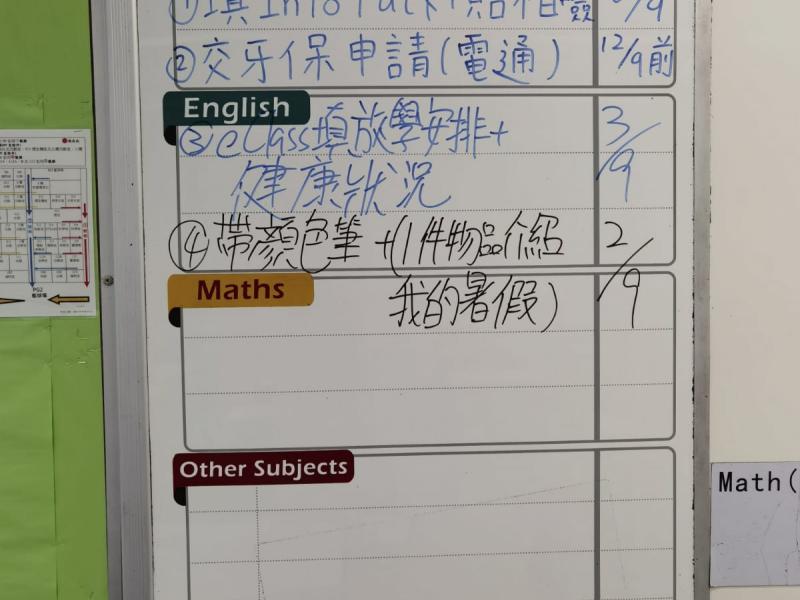 ②交牙保申請(電通) 12/9前
English
③eClass填放學安排+ 3/9
健康狀況
④带顏色筆+(1件物品介紹 2/9
Maths
我的暑假)
Other Subjects
Math(